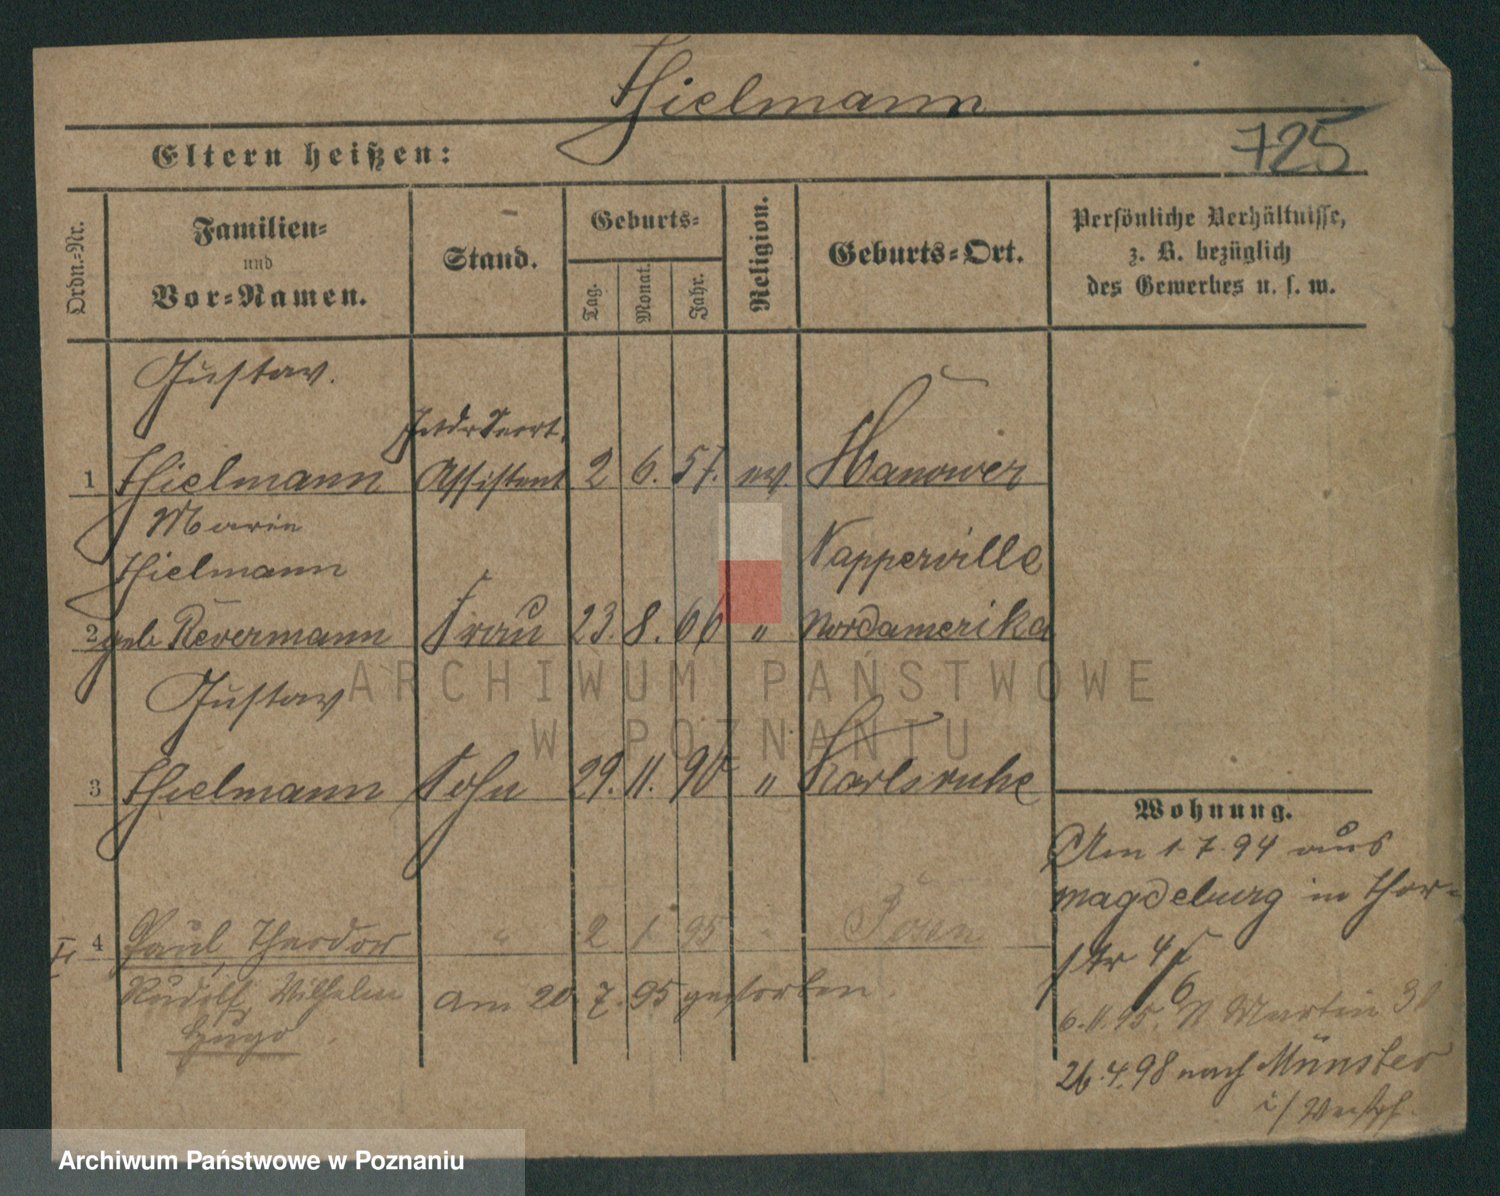 Thielmann
725
Eltern heißen:
Ordn.-Nr.
Familien-
und
Vor-Namen.
Stand.
Geburts-
Tag.
Monat.
Jahr.
Religion.
Geburts-Ort.
Persönliche Verhältnisse,
z. B. bezüglich
des Gewerbes u. s. w.
Gustav.
1 Thielmann Assistent 2 6. 57. ev. Hanower
Marie
Thielmann Napperville
2 geb Revermann Frau 23. 8. 66 " Nordamerika
Gustav
3 Thielmann Sohn 29. 11. 90 " Karlsruhe
Wohnung.
Am 1 7. 94 aus
Magdeburg in Thor-
str 4
4 Paul, Theodor " 2 1 95 " Posen
Rudolf, Wilhelm am 20 7. 95 gestorben.
Hugo
6. 11. 95. St Martin
26. 4. 98 nach Münster
i/ Westph.
ARCHIWUM PAŃSTWOWE
W POZNANIU
Archiwum Państwowe w Poznaniu